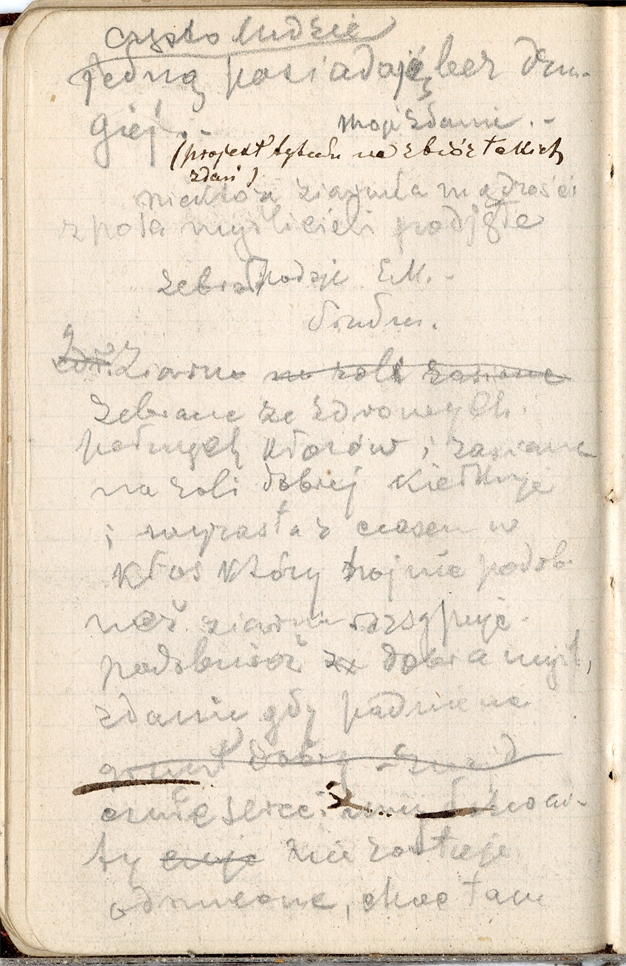 często ludzie
jedną posiadają bez dru-
giej. -
moje zdanie. -
(projekt tytułu na zbiór takich
zdań)
niektóre ziarnka mądrości
z pola myślicieli podjęte
zebrał podaje E.M. -
Ziarno na roli zasiane
zebrane ze zdrowych
pełnych kłosów i zasiane
na roli dobrej kiełkuje
i wyrasta z czasem w
kłos który hojnie podob-
neż ziarna rozsypuje.
podobnież dobra myśl,
zdanie gdy padnie na
grunt dobry
ty nie zostaje
odrzucone, choć tam